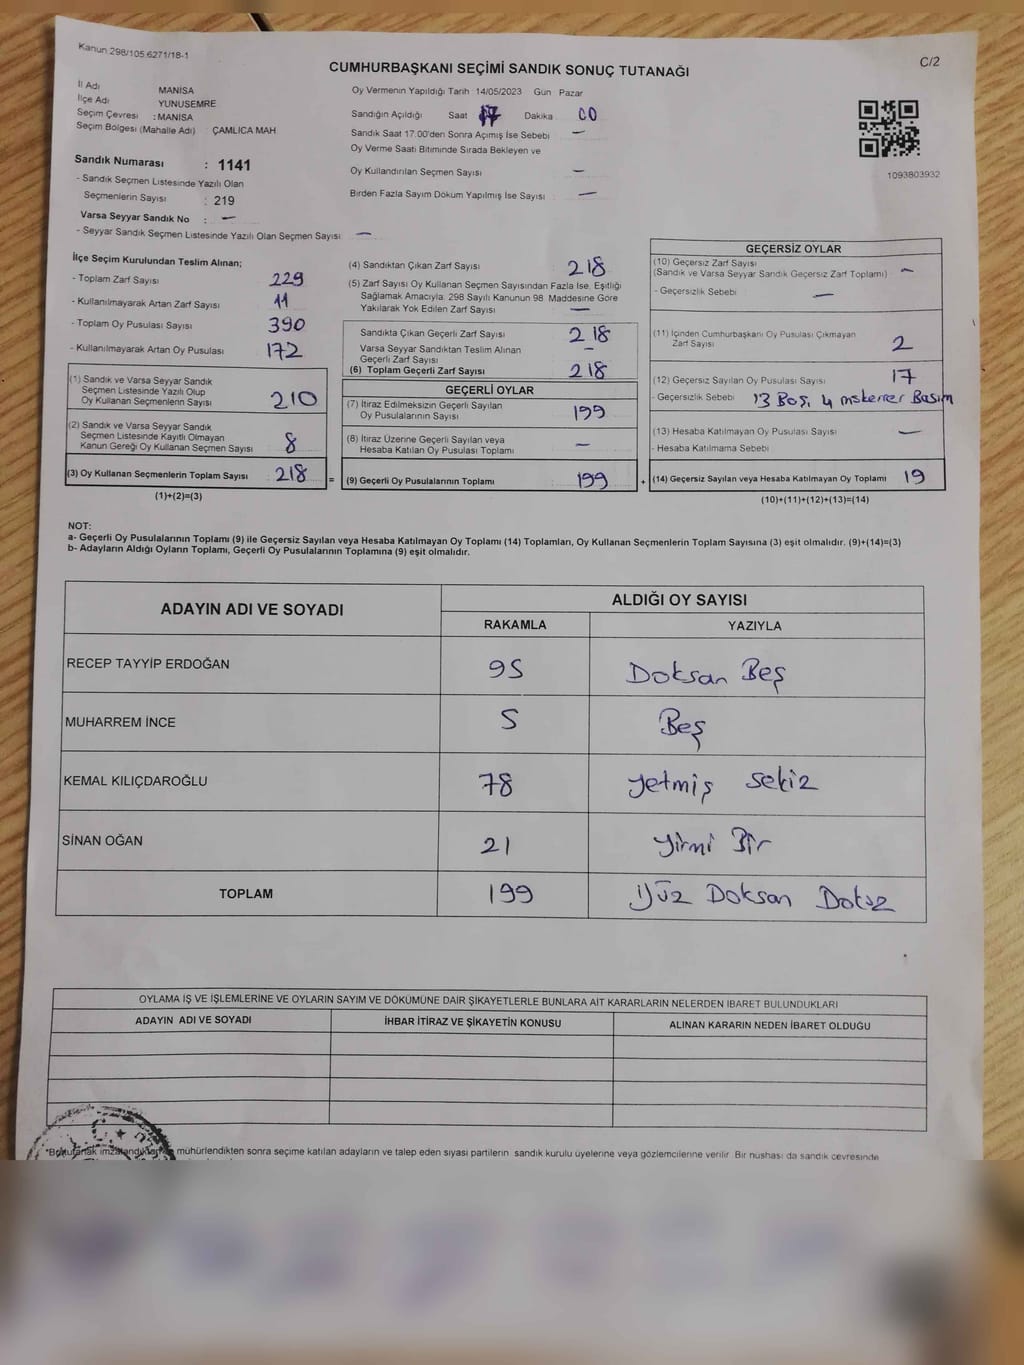 Kanun 298/105.6271/18-1
C/2
CUMHURBAŞKANI SEÇİMİ SANDIK SONUÇ TUTANAĞI
İl Adı MANİSA
İlçe Adı YUNUSEMRE
Seçim Çevresi : MANİSA
Seçim Bölgesi (Mahalle Adı) : ÇAMLICA MAH.
Sandık Numarası : 1141
- Sandık Seçmen Listesinde Yazılı Olan
Seçmenlerin Sayısı : 219
Varsa Seyyar Sandık No : —
- Seyyar Sandık Seçmen Listesinde Yazılı Olan Seçmen Sayısı —
Oy Vermenin Yapıldığı Tarih 14/05/2023 Gün Pazar
Sandığın Açıldığı Saat 17 Dakika 00
Sandık Saat 17:00'den Sonra Açımış İse Sebebi —
Oy Verme Saati Bitiminde Sırada Bekleyen ve
Oy Kullandırılan Seçmen Sayısı —
Birden Fazla Sayım Döküm Yapılmış İse Sayısı —
1093803932
İlçe Seçim Kurulundan Teslim Alınan;
- Toplam Zarf Sayısı 229
- Kullanılmayarak Artan Zarf Sayısı 11
- Toplam Oy Pusulası Sayısı 390
- Kullanılmayarak Artan Oy Pusulası 172
(1) Sandık ve Varsa Seyyar Sandık
Seçmen Listesinde Yazılı Olup
Oy Kullanan Seçmenlerin Sayısı 210
(2) Sandık ve Varsa Seyyar Sandık
Seçmen Listesinde Kayıtlı Olmayan
Kanun Gereği Oy Kullanan Seçmen Sayısı 8
(3) Oy Kullanan Seçmenlerin Toplam Sayısı 218 =
(1)+(2)=(3)
(4) Sandıktan Çıkan Zarf Sayısı 218
(5) Zarf Sayısı Oy Kullanan Seçmen Sayısından Fazla İse, Eşitliği
Sağlamak Amacıyla, 298 Sayılı Kanunun 98. Maddesine Göre
Yakılarak Yok Edilen Zarf Sayısı —
Sandıkta Çıkan Geçerli Zarf Sayısı 218
Varsa Seyyar Sandıktan Teslim Alınan
Geçerli Zarf Sayısı —
(6) Toplam Geçerli Zarf Sayısı 218
GEÇERLİ OYLAR
(7) İtiraz Edilmeksizin Geçerli Sayılan
Oy Pusulalarının Sayısı 199
(8) İtiraz Üzerine Geçerli Sayılan veya
Hesaba Katılan Oy Pusulası Toplamı —
(9) Geçerli Oy Pusulalarının Toplamı 199 +
GEÇERSİZ OYLAR
(10) Geçersiz Zarf Sayısı
(Sandık ve Varsa Seyyar Sandık Geçersiz Zarf Toplamı) —
- Geçersizlik Sebebi —
(11) İçinden Cumhurbaşkanı Oy Pusulası Çıkmayan
Zarf Sayısı 2
(12) Geçersiz Sayılan Oy Pusulası Sayısı 17
- Geçersizlik Sebebi 13 Boş, 4 mskerrer Basım
(13) Hesaba Katılmayan Oy Pusulası Sayısı —
- Hesaba Katılmama Sebebi
(14) Geçersiz Sayılan veya Hesaba Katılmayan Oy Toplamı 19
(10)+(11)+(12)+(13)=(14)
NOT:
a- Geçerli Oy Pusulalarının Toplamı (9) ile Geçersiz Sayılan veya Hesaba Katılmayan Oy Toplamı (14) Toplamları, Oy Kullanan Seçmenlerin Toplam Sayısına (3) eşit olmalıdır. (9)+(14)=(3)
b- Adayların Aldığı Oyların Toplamı, Geçerli Oy Pusulalarının Toplamına (9) eşit olmalıdır.
ADAYIN ADI VE SOYADI ALDIĞI OY SAYISI
RAKAMLA YAZIYLA
RECEP TAYYİP ERDOĞAN 95 Doksan Beş
MUHARREM İNCE 5 Beş
KEMAL KILIÇDAROĞLU 78 yetmiş sekiz
SİNAN OĞAN 21 yirmi Bir
TOPLAM 199 yüz Doksan Dokuz
OYLAMA İŞ VE İŞLEMLERİNE VE OYLARIN SAYIM VE DÖKÜMÜNE DAİR ŞİKAYETLERLE BUNLARA AİT KARARLARIN NELERDEN İBARET BULUNDUKLARI
ADAYIN ADI VE SOYADI İHBAR İTİRAZ VE ŞİKAYETİN KONUSU ALINAN KARARIN NEDEN İBARET OLDUĞU
mühürlendikten sonra seçime katılan adayların ve talep eden siyasi partilerin sandık kurulu üyelerine veya gözlemcilerine verilir. Bir nüshası da sandık çevresinde